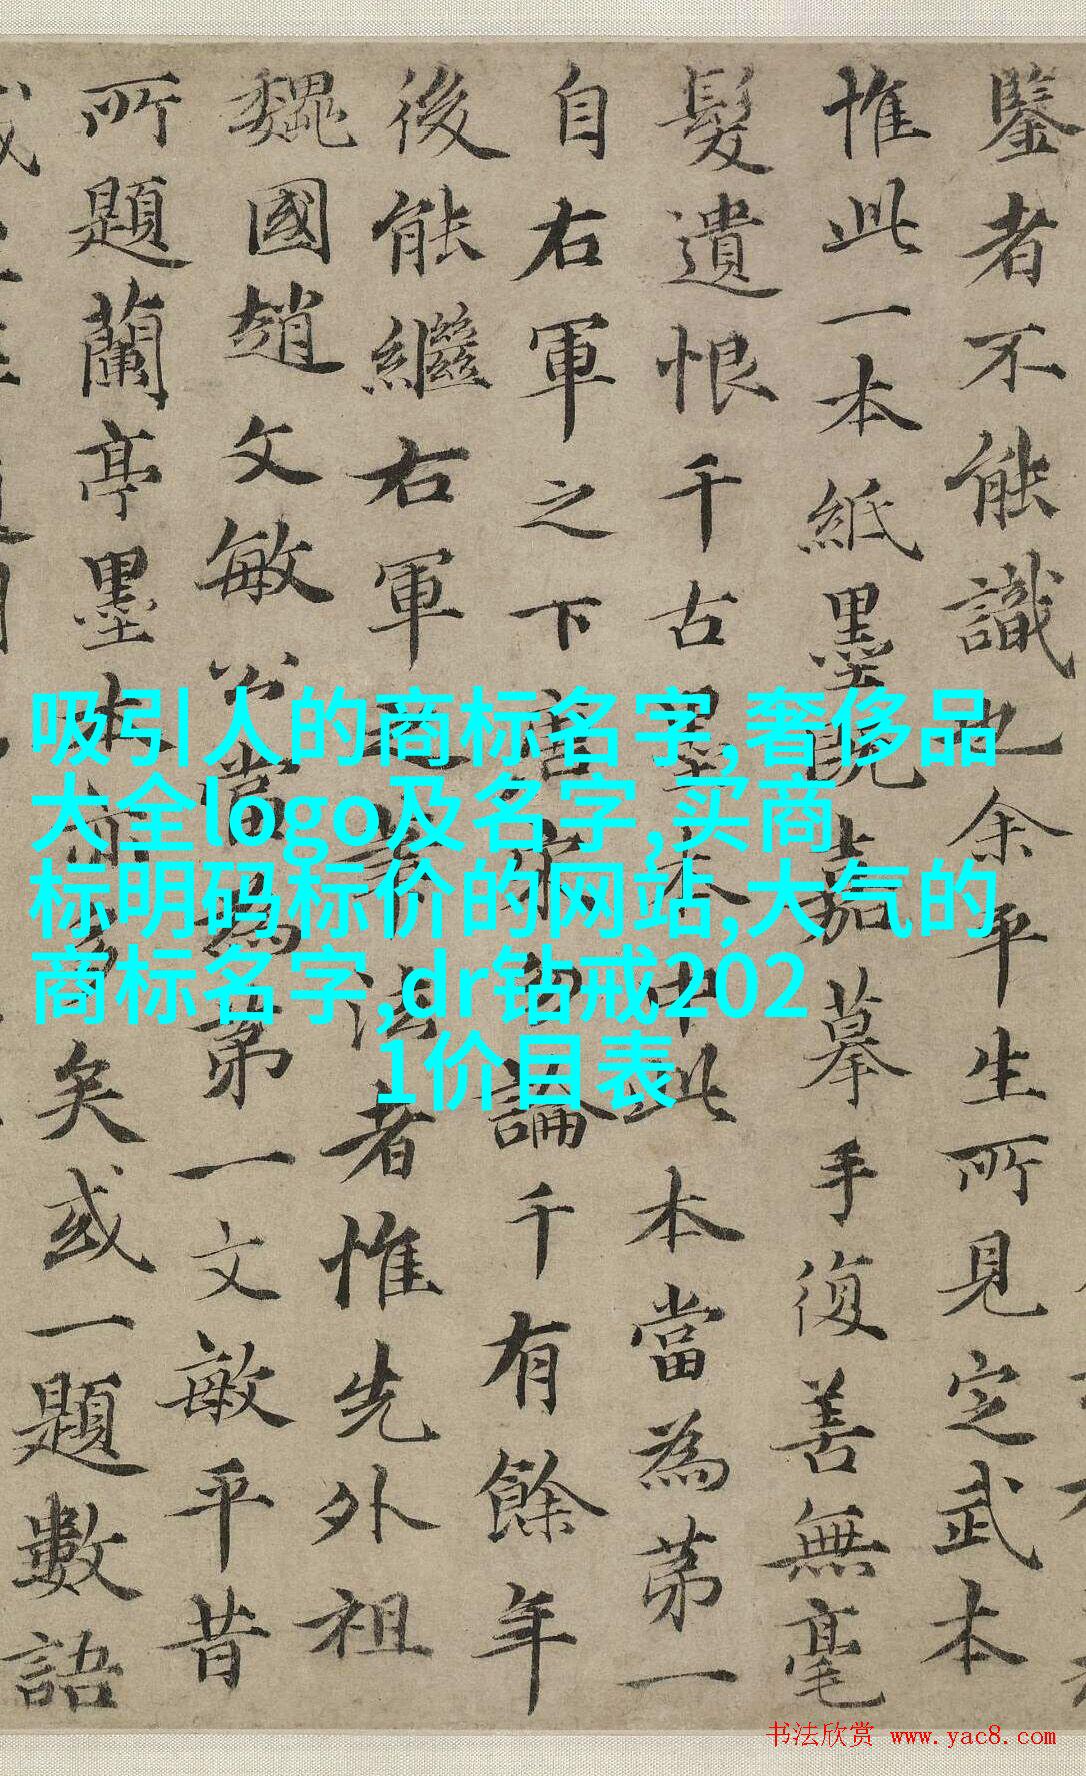 鑒者不能識也余平生所見定武本
惟此一本紙墨既嘉摹手復善無毫
髮遺恨千古墨本中此本當為第一
自右軍之下唐宋勿論千有餘年
後能繼右軍法者惟先外祖
魏國趙文敏公當為第一文敏平昔
所題蘭亭墨本亦多矣或一題數語
吸引人的商标名字,奢侈品
大全logo及名字,买商
标明码标价的网站,大气的
商标名字,dr钻戒202
1价目表
书法欣赏 www.yac8.com